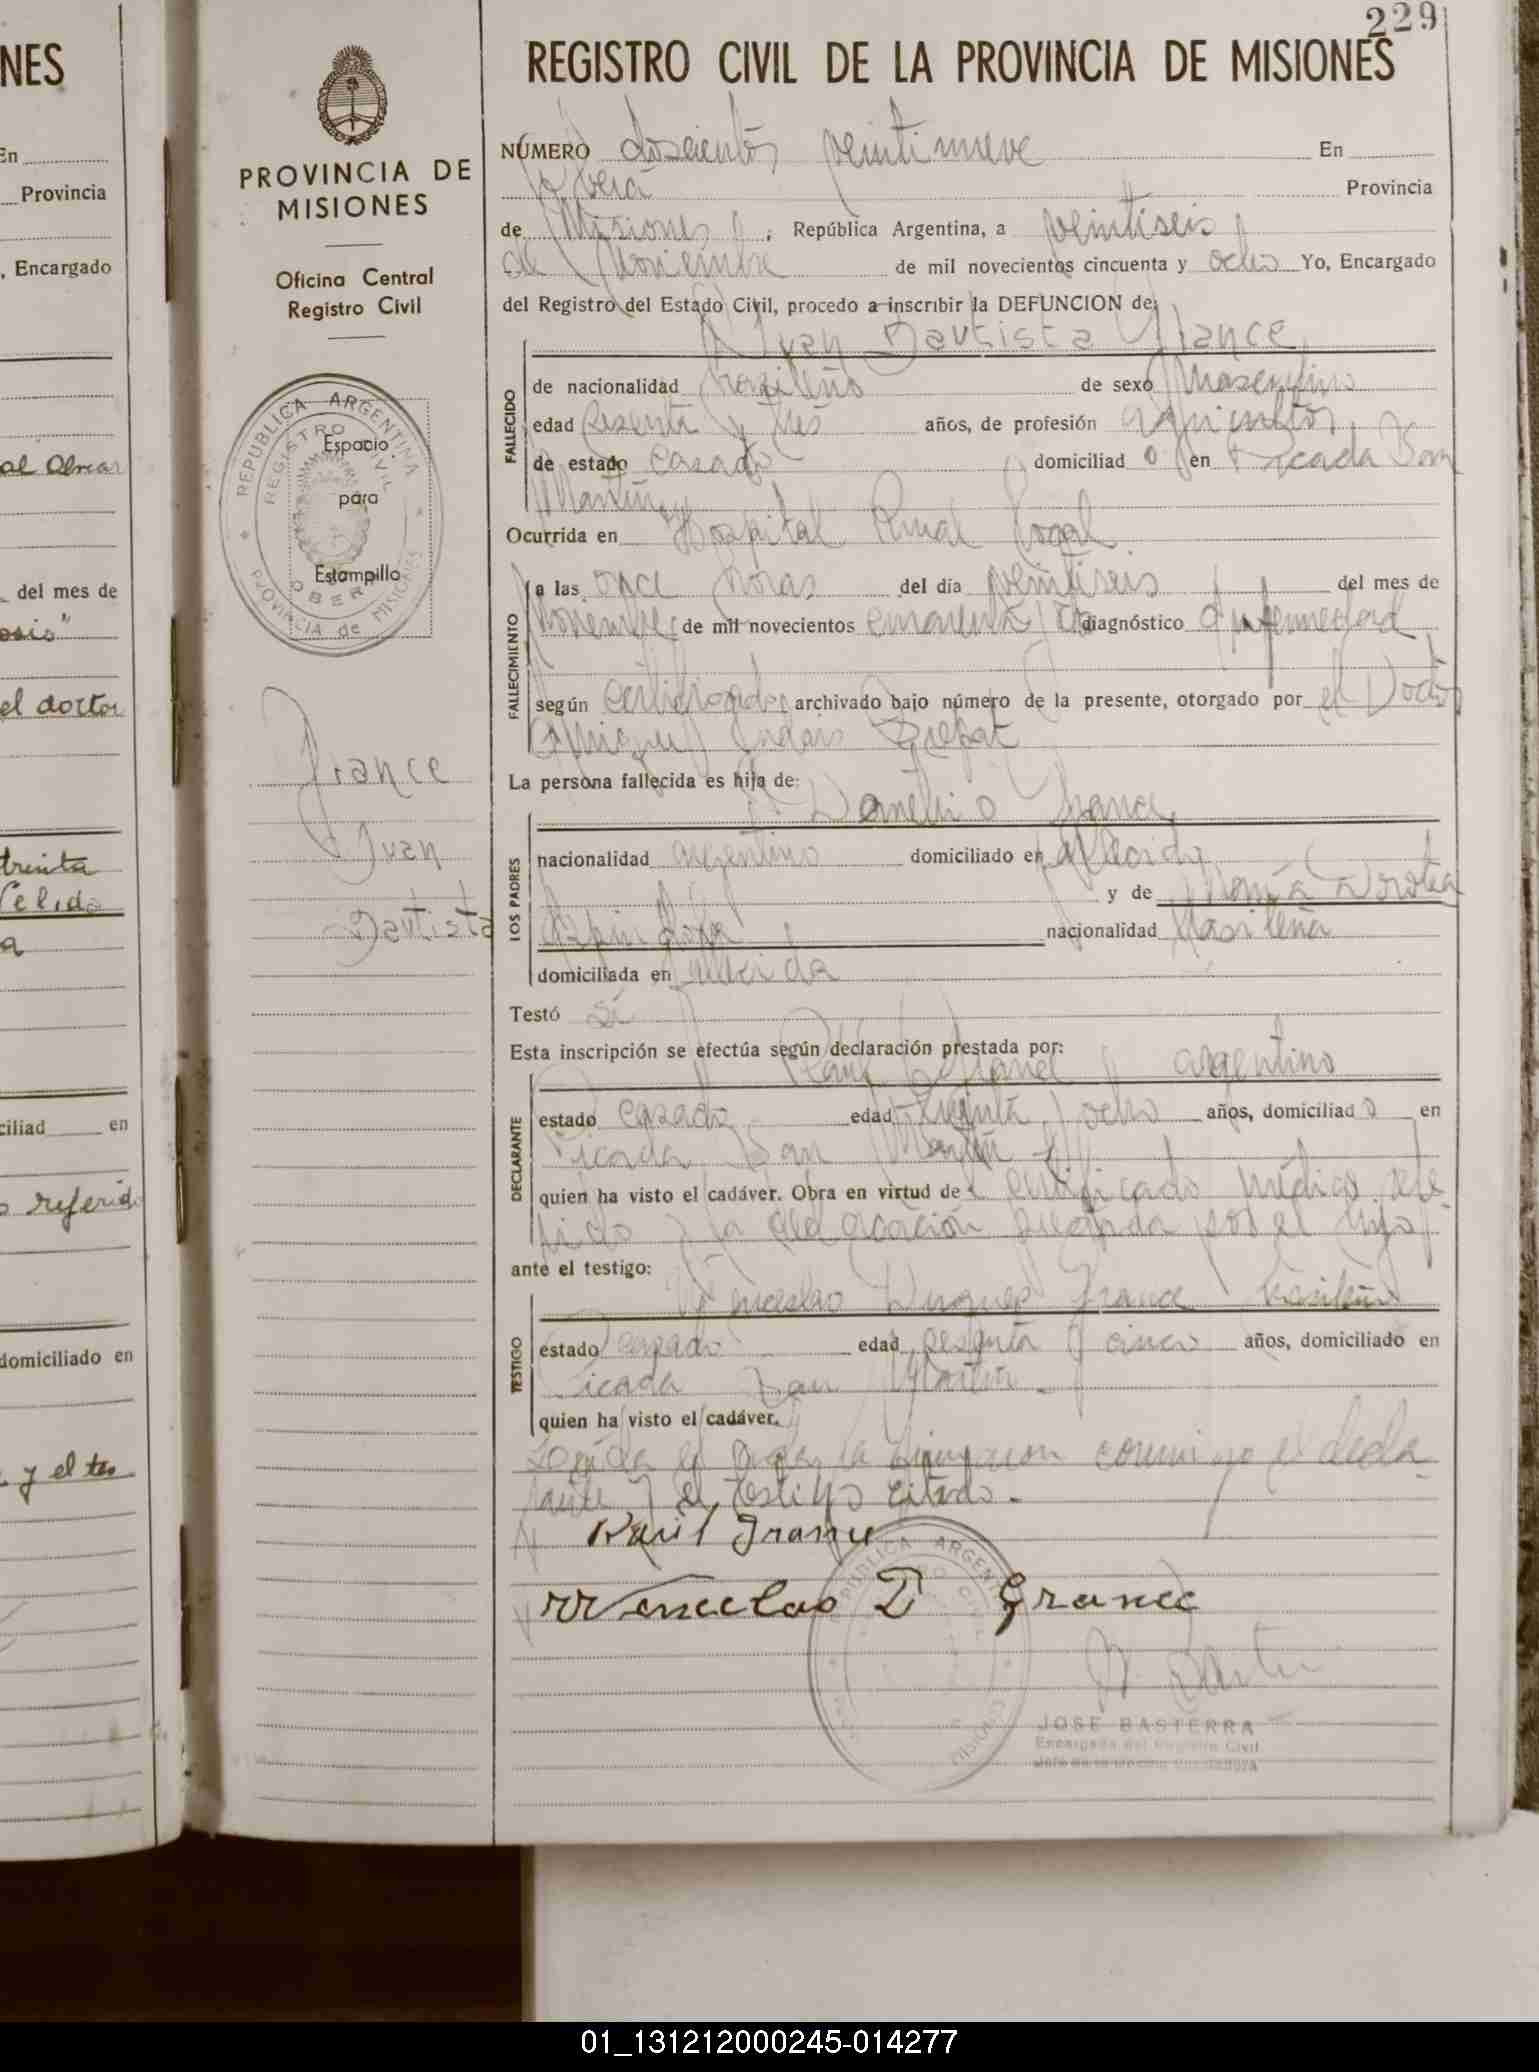 NES
En
Provincia
, Encargado
al Obrear
del mes de
osis"
el doctor
treinta
Celido
a
ciliad en
o referido
domiciliado en
y el tes
229
PROVINCIA DE
MISIONES
Oficina Central
Registro Civil
REPUBLICA ARGENTINA
REGISTRO CIVIL
OBERA
PROVINCIA de MISIONES
Espacio
para
Estampilla
Grance
Juan
Bautista
REGISTRO CIVIL DE LA PROVINCIA DE MISIONES
NÚMERO doscientos veintinueve En
Oberá Provincia
de Misiones, República Argentina, a veintiseis
de Noviembre de mil novecientos cincuenta y ocho Yo, Encargado
del Registro del Estado Civil, procedo a inscribir la DEFUNCION de:
Juan Bautista Grance
FALLECIDO
de nacionalidad brasileño de sexo masculino
edad sesenta y tres años, de profesión agricultor
de estado casado domiciliado en Picada San
Martín
Ocurrida en Hospital Rural local
FALLECIMIENTO
a las once horas del día veintiseis del mes de
Noviembre de mil novecientos diagnóstico Enfermedad
según certificado archivado bajo número de la presente, otorgado por el Doctor
La persona fallecida es hija de:
LOS PADRES
Grance
nacionalidad argentino domiciliado en fallecido
y de María
nacionalidad brasileña
domiciliada en fallecida
Testó si
Esta inscripción se efectúa según declaración prestada por:
DECLARANTE
Raúl Grance argentino
estado casado edad treinta y ocho años, domiciliado en
Picada San Martín
quien ha visto el cadáver. Obra en virtud de certificado médico refe
rido y la declaración prestada por el hijo
ante el testigo:
TESTIGO
Wenceslao Grance brasileño
estado casado edad sesenta y cinco años, domiciliado en
Picada San Martín
quien ha visto el cadáver.
Leída el acta, la firmaron conmigo el decla
rante y el testigo citado.
Raúl Grance
Wenceclao D Grance
REPUBLICA ARGENTINA
MISIONES
JOSE BASTERRA
Encargado del Registro Civil
01_131212000245-014277